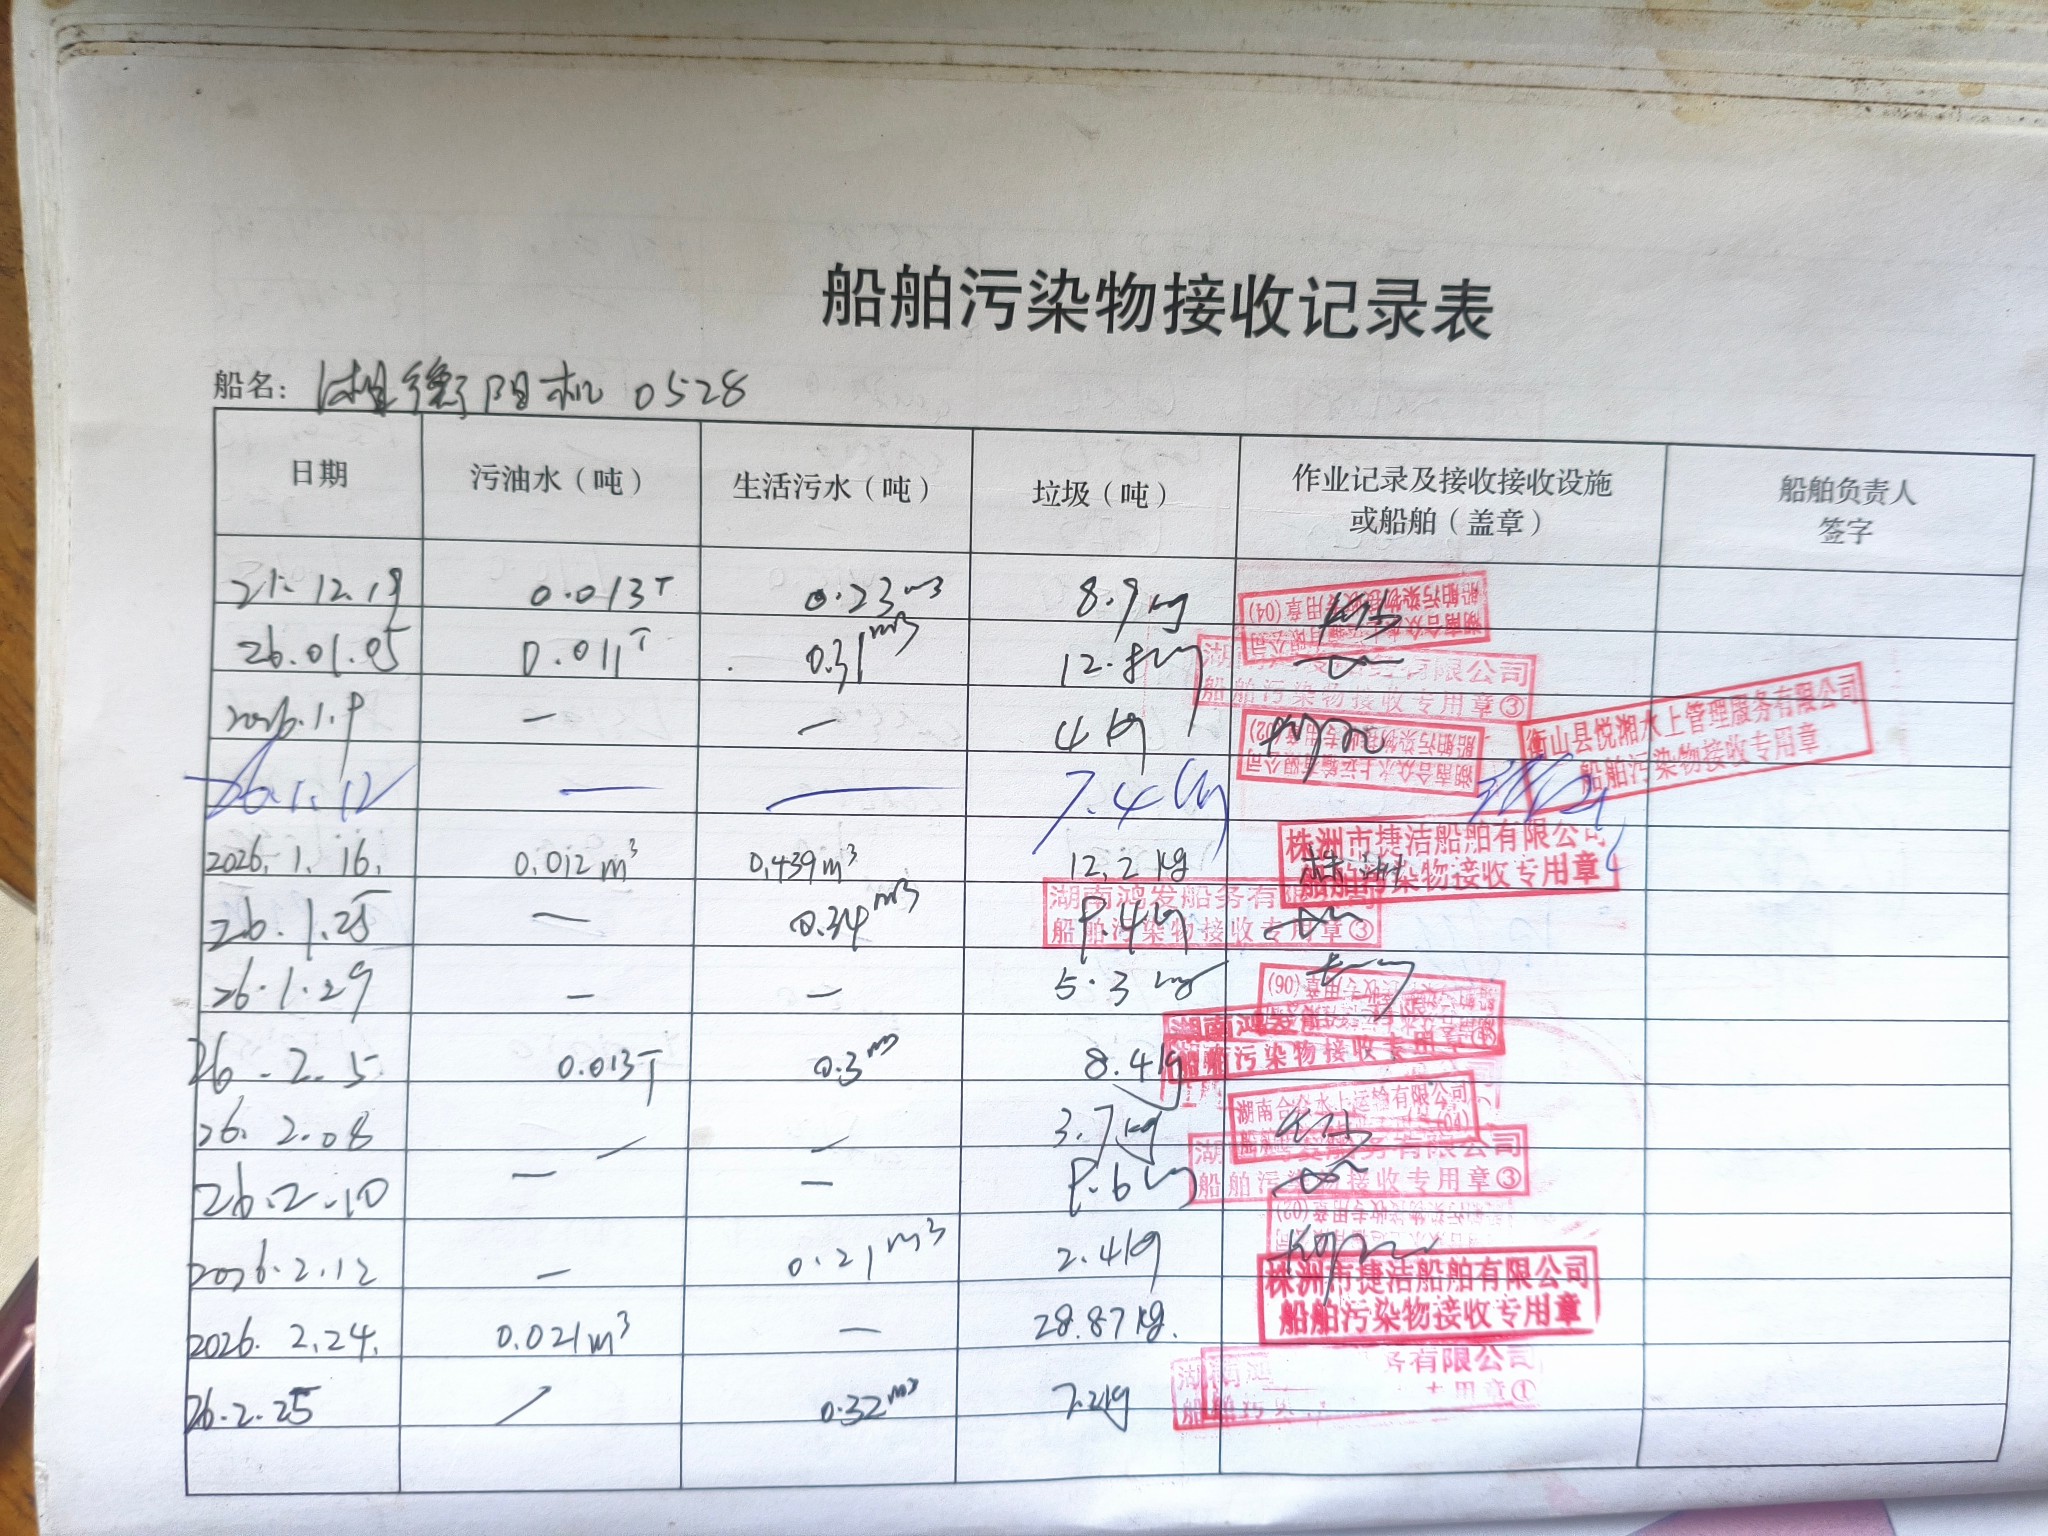 船舶污染物接收记录表
船名: 湘衡阳机 0528
日期 污油水(吨) 生活污水(吨) 垃圾(吨) 作业记录及接收接收设施或船舶(盖章) 船舶负责人签字
12.19 0.013T 0.23m3 8.9kg
26.01.05 0.011T 0.31m3 12.8kg
船舶污染物接收专用章③
2026.1.9 — — 4kg
湖南合众水上运输有限公司
船舶污染物接收专用章(02)
26.1.12 — — 7.4kg
衡山县悦湘水上管理服务有限公司
船舶污染物接收专用章
2026.1.16. 0.012m³ 0.439m³ 12.2kg 株洲
株洲市捷洁船舶有限公司
船舶污染物接收专用章
26.1.25 — 0.34m3 9.4kg
湖南鸿发船务有限公司
船舶污染物接收专用章③
26.1.29 — — 5.3kg
26.2.5 0.013T 0.3m3 8.4kg
湖南鸿发
船舶污染物接收专用章
26.2.08 — — 3.7kg
湖南合众水上运输有限公司
26.2.10 — — 9.6kg
船舶污染物接收专用章③
2026.2.12 — 0.21m3 2.4kg
2026.2.24. 0.021m³ — 28.87kg.
株洲市捷洁船舶有限公司
船舶污染物接收专用章
26.2.25 / 0.32m3 7.2kg
务有限公司
用章①